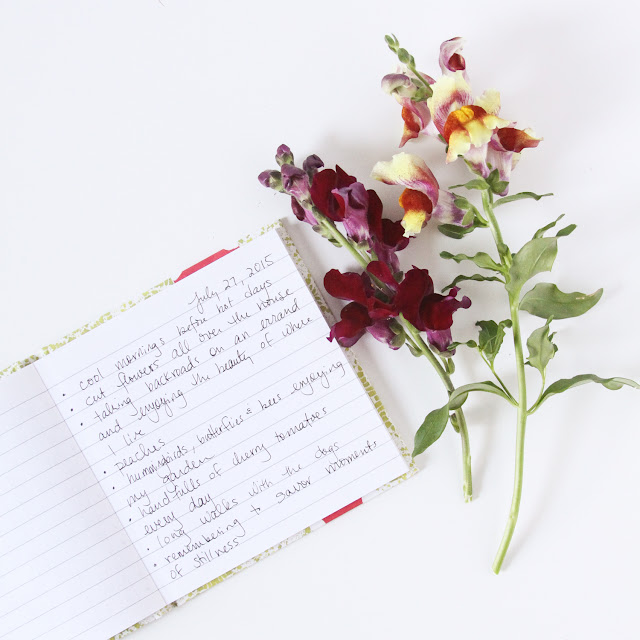 July 27, 2015
• cool mornings before hot days
• cut flowers all over the house
• taking backroads on an errand
and enjoying the beauty of where
I live
• peaches
• hummingbirds, butterflies & bees enjoying
my garden
• handfulls of cherry tomatoes
every day
• long walks with the dogs
• remembering to savor moments
of stillness